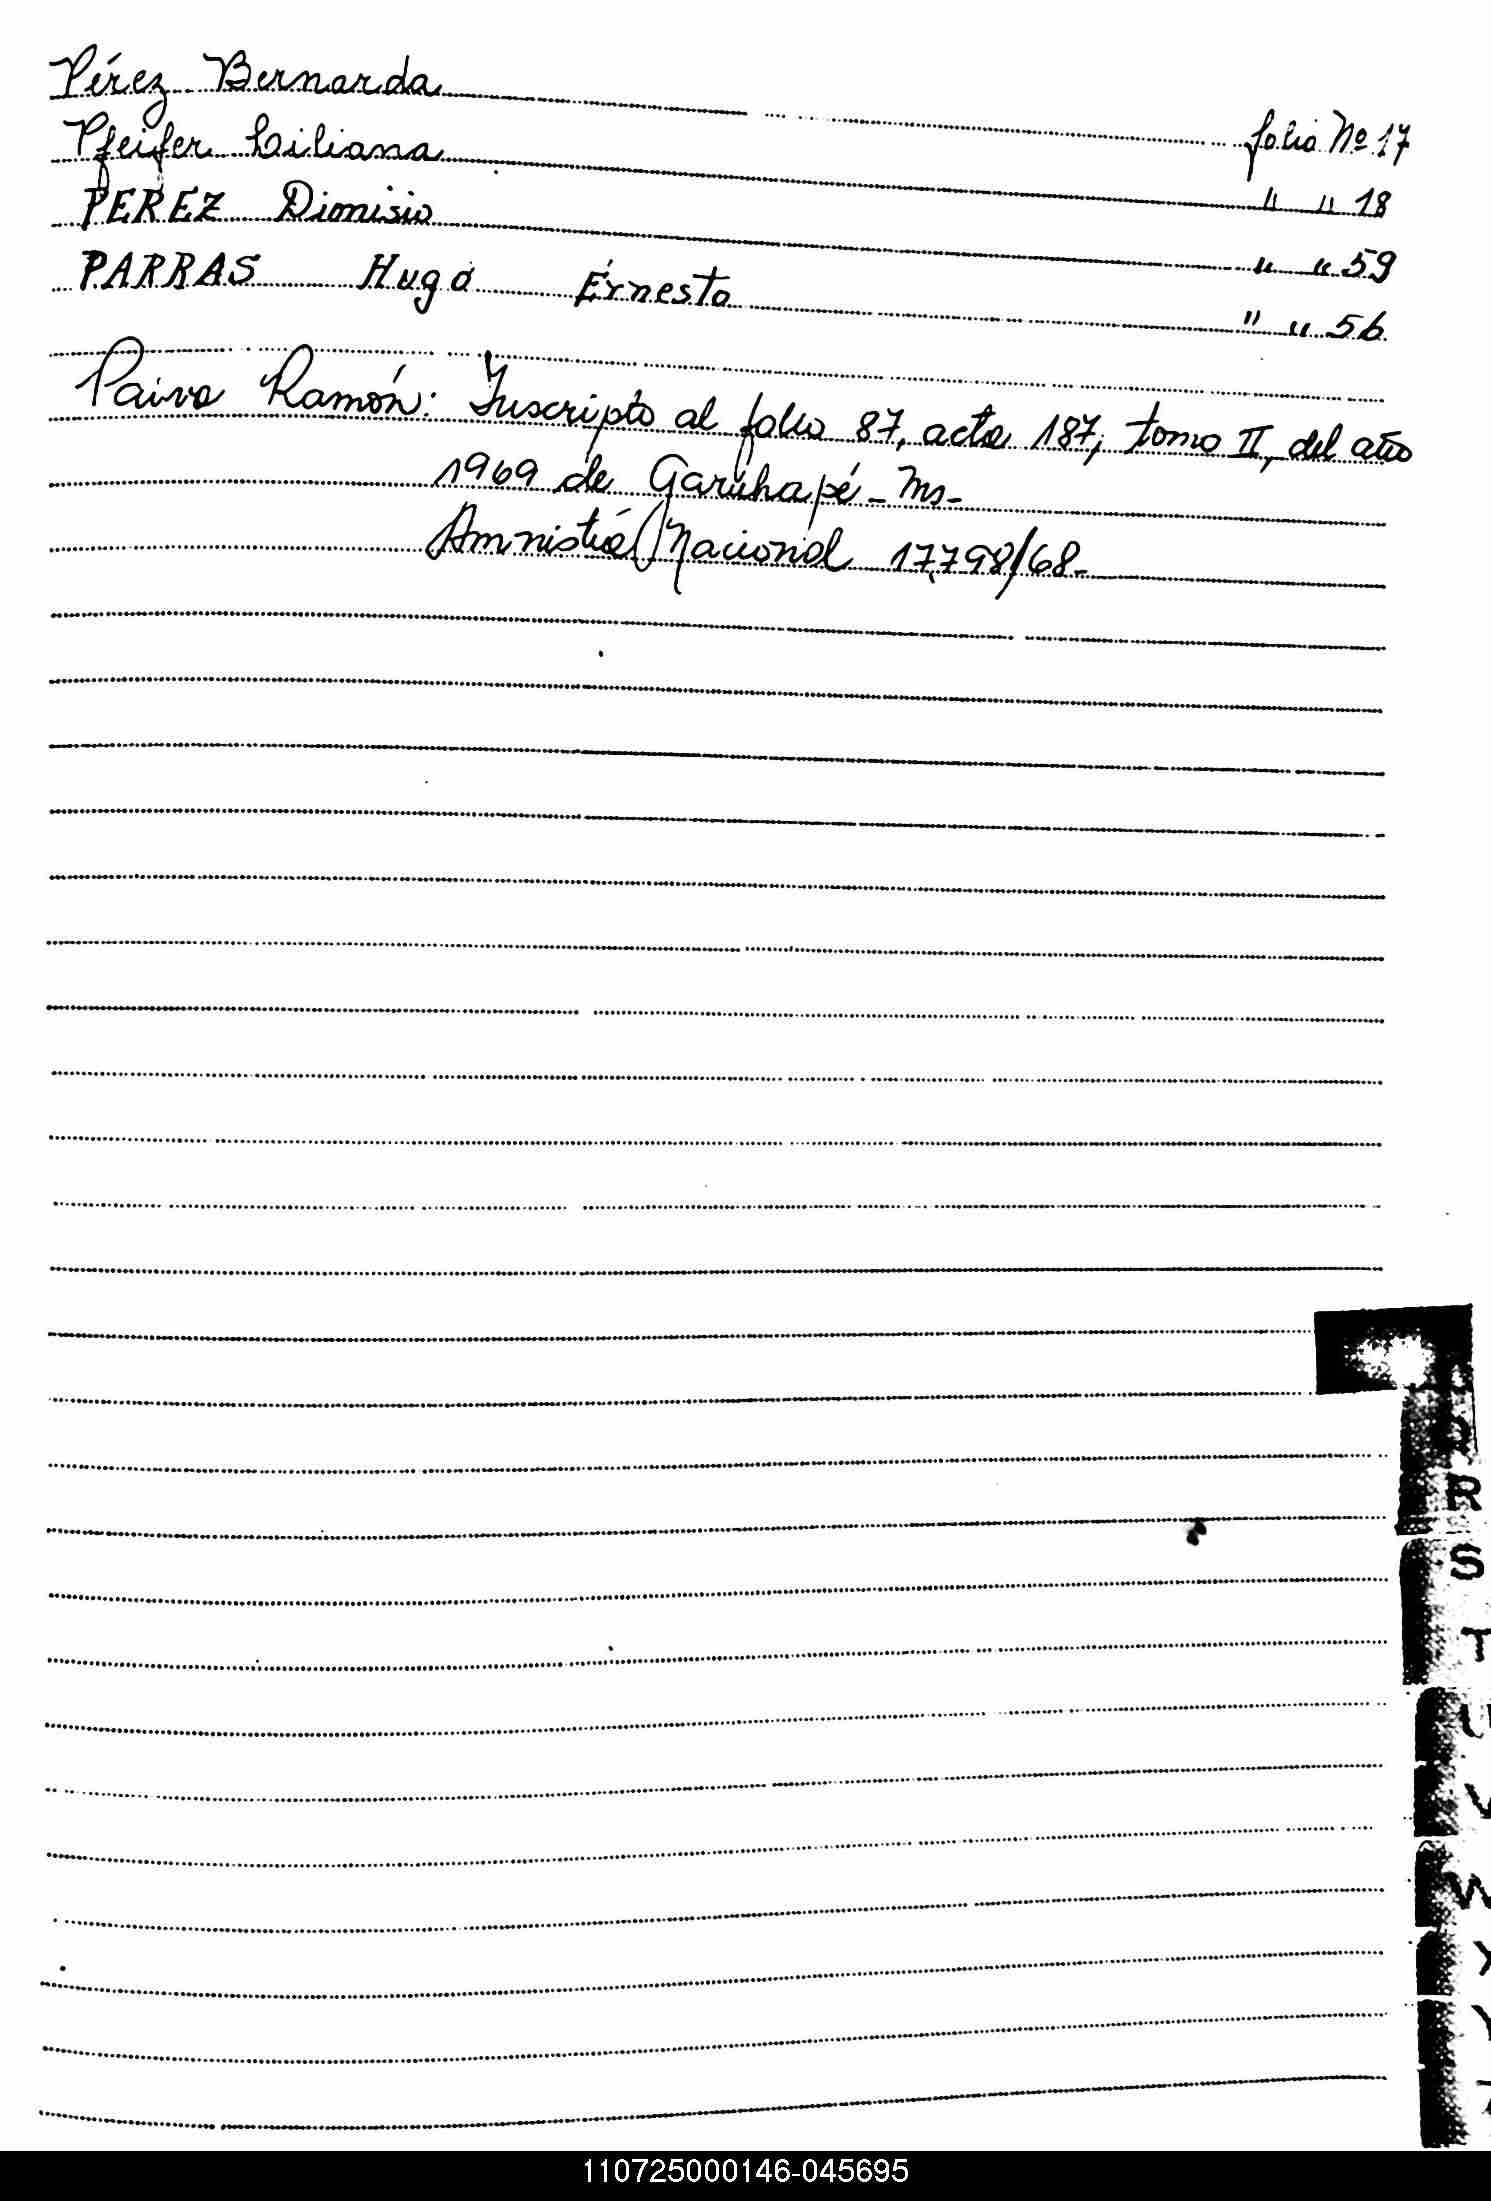 Pérez Bernarda folio Nº 17
Pfeifer Liliana " " 18
PEREZ Dionisio " " 59
PARRAS Hugo Ernesto " " 56
Paiva Ramón: Inscripto al folio 87, acta 187, tomo II, del año
1969 de Garuhapé - Ms -
Amnistía Nacional 17.798/68 -
R
S
T
U
V
W
X
Y
Z
110725000146-045695